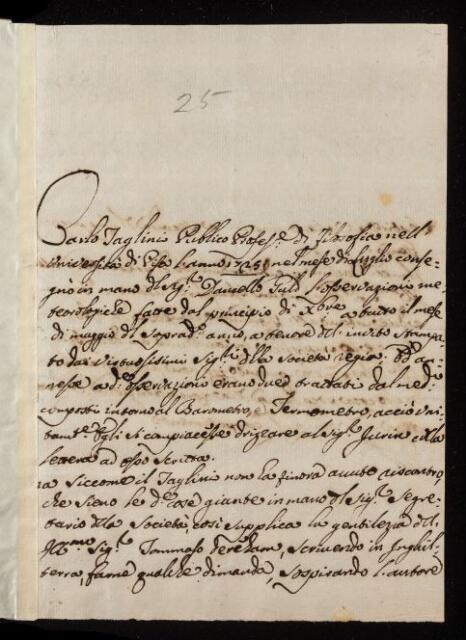 25
Carlo Taglini Publico Profess.e di filosofia nell'
Università di Pisa l'anno 1725 nel mese di Luglio conse-
gnò in mano di Sig.r l'osservazioni me-
teorologiche fatte dal principio di a tutto il mese
di maggio di Soprad.o anno, a tenore dell' invito stampa-
to dai Virtuosissimi Sig.ri della Società regia. Ed an-
nesse a d.e osservazioni erano due trattati dal med.o
composti intorno al Barometro, e Termometro, acciò uni-
tam.te Egli si compiacesse drizzare al Sig.r Jurin colla
lettera ad esso scritta.
a Siccome il Taglini non ha finora avuto riscontro,
che sieno le d.e cose giunte in mano del Sig.r Segre-
tario della Società, così supplica la gentilezza dell'
Ill.mo Sig.r Tommaso Dereham, scrivendo in Inghil-
terra, farne qualche dimanda, l'autore